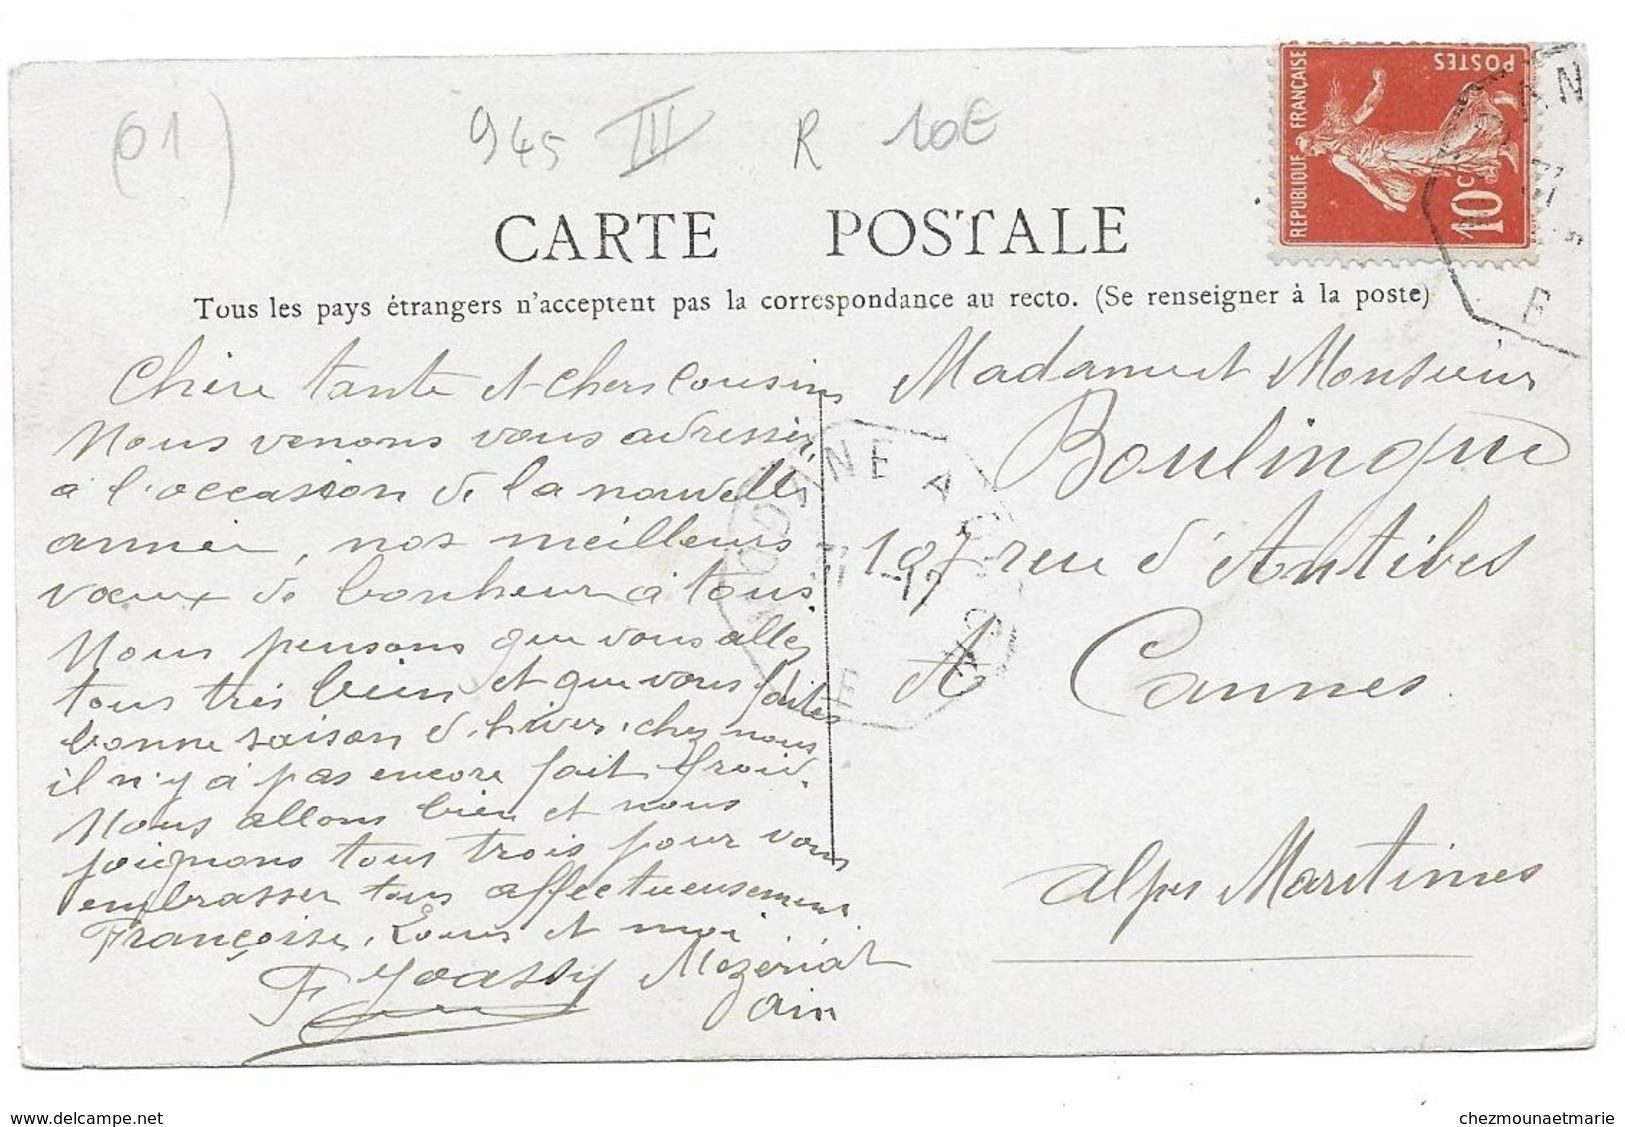 (01)
945 III R 10€
REPUBLIQUE FRANÇAISE
POSTES
10 c
CARTE POSTALE
Tous les pays étrangers n'acceptent pas la correspondance au recto. (Se renseigner à la poste)
Chère tante et chers Cousins
Nous venons vous adresser,
à l'occasion de la nouvelle
année, nos meilleurs
vœux de bonheur à tous
Nous pensons que vous allez
tous très bien et que vous faites
bonne saison d'hiver, chez nous
il n'y a pas encore fait froid.
Nous allons bien et nous
joignons tous trois pour vous
embrasser tous affectueusement
Françoise, Louis et moi
F Joassy Mézériat
Ain
Madame et Monsieur
Boulingue
107 rue d'Antibes
A Cannes
Alpes Maritimes
www.delcampe.net
chezmounaetmarie